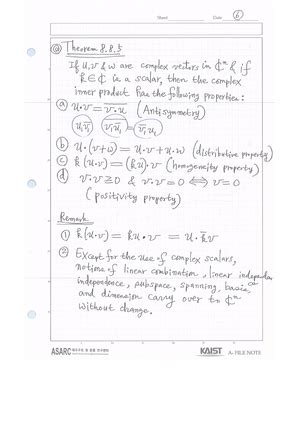 Sheet Date 6
@ Theorem 8.8.5
If u, v & w are complex vectors in ₵ⁿ & if
k ∈ ₵ is a scalar, then the complex
inner product has the following properties:
ⓐ u·v = \overline{v·u} (Antisymmetry)
u₁\overline{v₁} \overline{v₁\overline{u₁}} = \overline{v₁}u₁
ⓑ u·(v+w) = u·v + u·w (distributive property)
ⓒ k(u·v) = (ku)·v (homogeneity property)
ⓓ v·v ≥ 0 & v·v = 0 ⟺ v = 0
(positivity property)
Remark
① k(u·v) = ku·v = u·\overline{k}v
② Except for the use of complex scalars,
notions of linear combination, linear independen
independence, subspace, spanning, basis,
and dimension carry over to ₵ⁿ
without change.
ASARC KAIST A₄ FILE NOTE